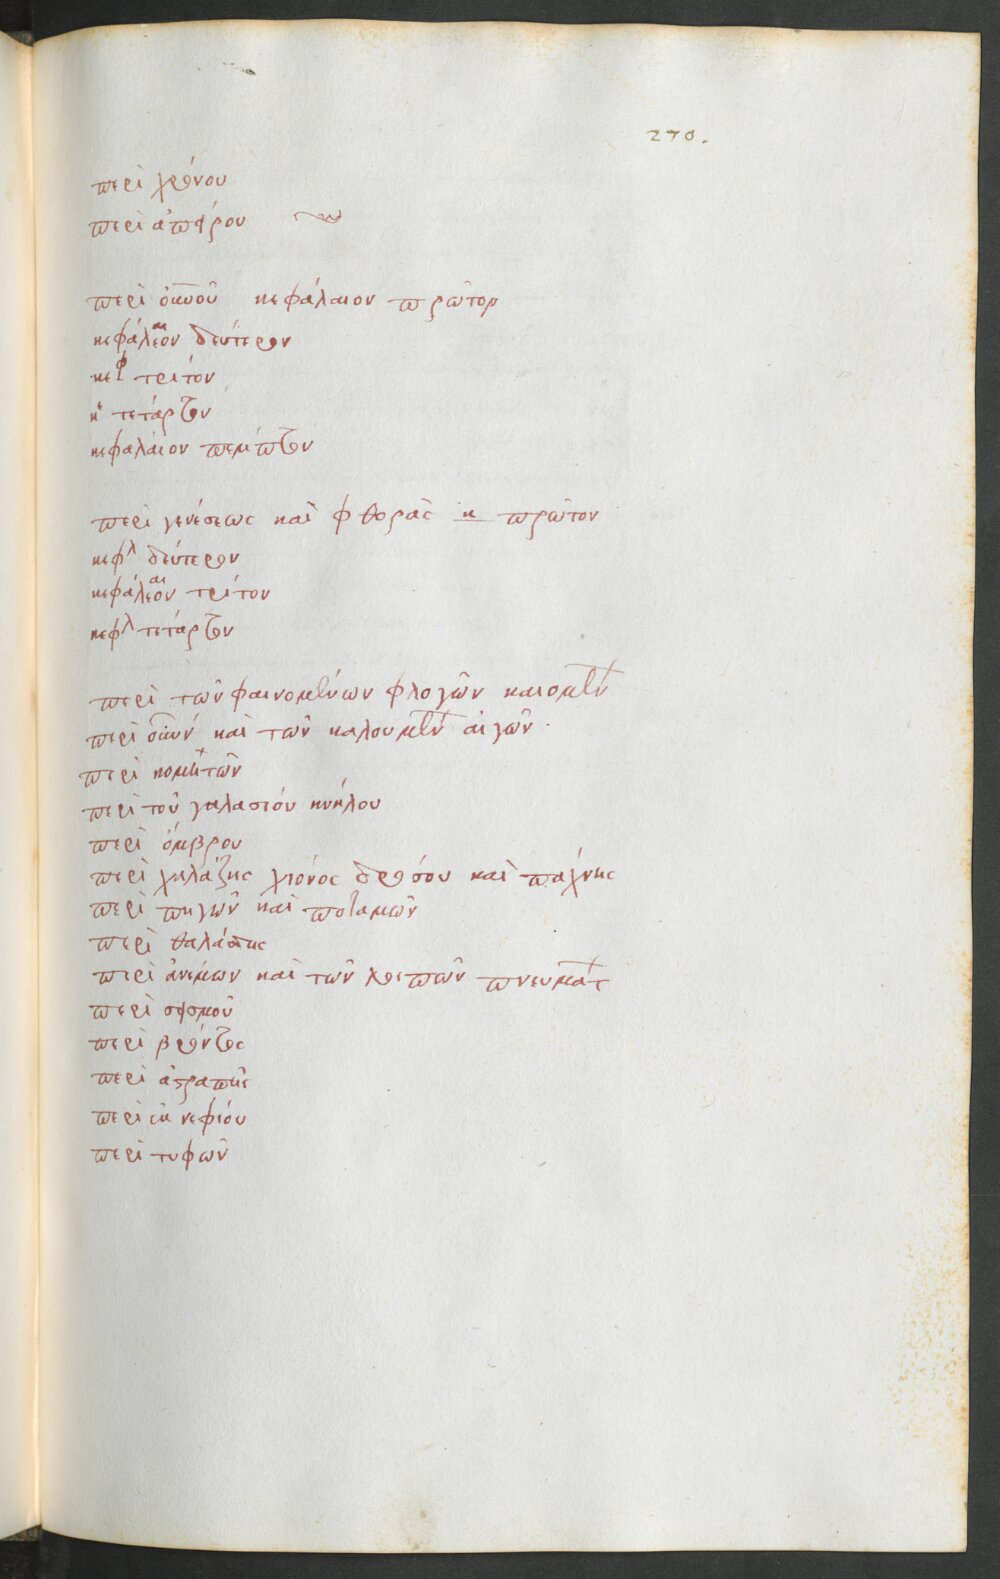 270.
περὶ χρόνου
περὶ ἀπείρου
περὶ οὐνοῦ κεφάλαιον πρῶτον
κεφάλεον δεύτερον
κεφ τρίτον
κε τετάρτον
κεφαλάιον πεμπτον
περὶ γενέσεως καὶ φθορᾶς κ πρῶτον
κεφλ δεύτερον
κεφάλεον τρίτον
κεφλ τετάρτον
περὶ τῶν φαινομένων φλογῶν καιομέν
περὶ καὶ τῶν καλουμέν αἰγῶν.
περὶ κομητῶν
περὶ τοῦ γαλασιόυ κυκλου
περὶ ὄμβρου
περὶ χαλάζης χιόνος δρόσου καὶ πάχνης
περὶ πηγῶν καὶ ποταμῶν
περὶ θαλάσης
περὶ ἀνέμων καὶ τῶν λοιπῶν πνευμάτ
περὶ σεισμοῦ
περὶ βρόντος
περὶ ἀστραπῆς
περὶ ἐκνεφίου
περὶ τυφῶν